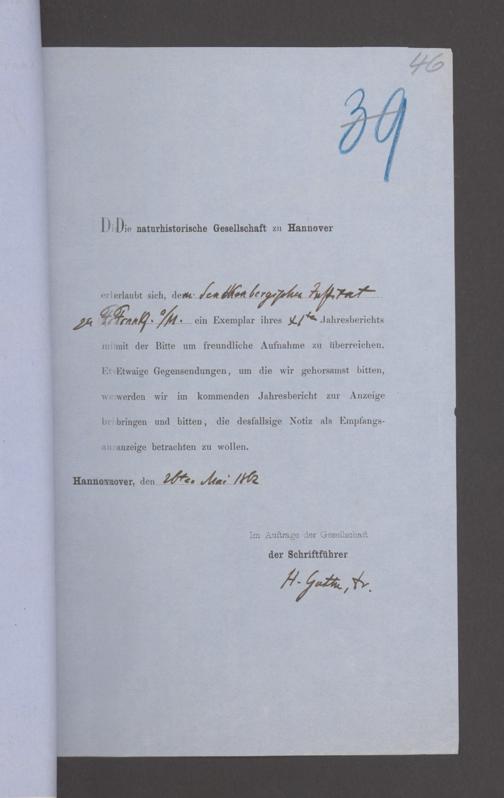 46
39
Die naturhistorische Gesellschaft zu Hannover
erlaubt sich, dem Senckenbergischen Institut
zu Frankf. a/M. ein Exemplar ihres XIten Jahresberichts
mit der Bitte um freundliche Aufnahme zu überreichen.
Etwaige Gegensendungen, um die wir gehorsamst bitten,
werden wir im kommenden Jahresbericht zur Anzeige
bringen und bitten, die desfallsige Notiz als Empfangs-
anzeige betrachten zu wollen.
Hannover, den 26ten Mai 1862
Im Auftrage der Gesellschaft
der Schriftführer
H. Guthe, Dr.